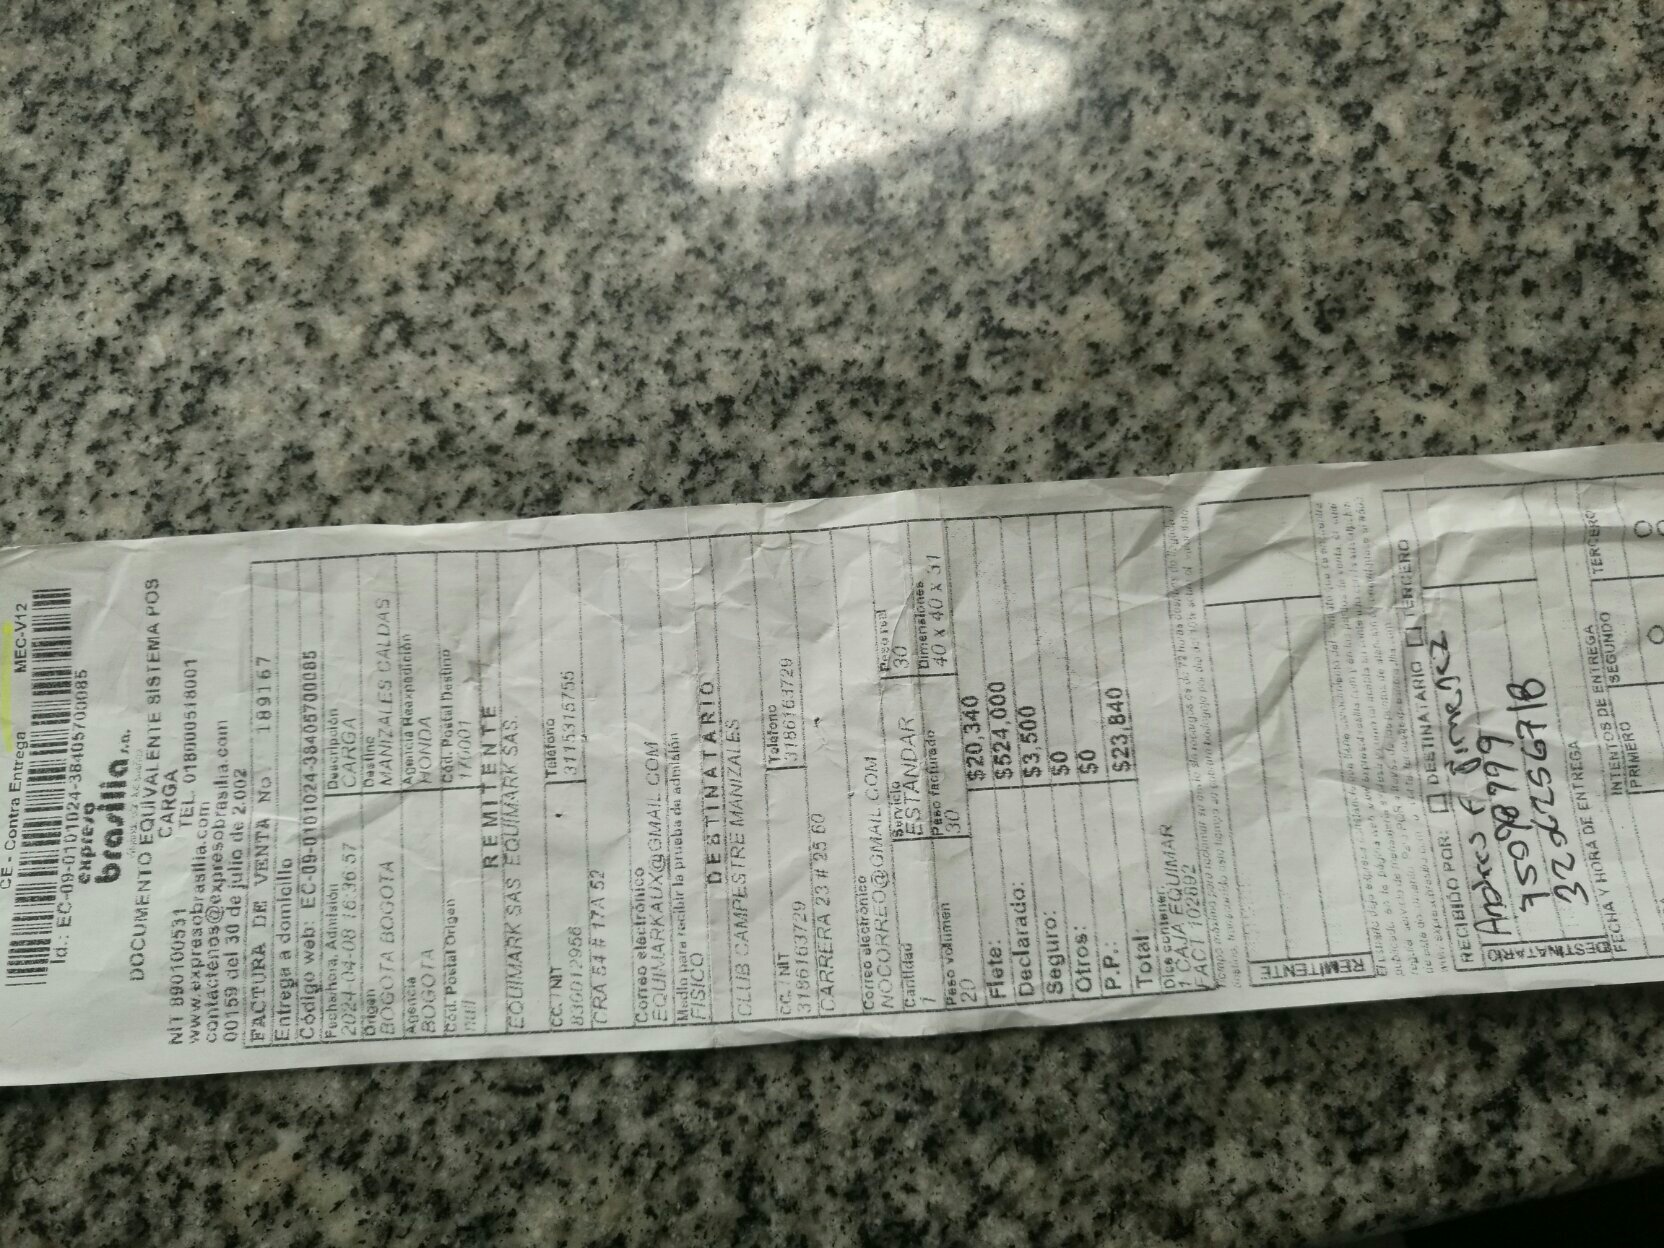 CE - Contra Entrega MEC-V12
Id.: EC-09-0101024-38405700085
expreso
brasilia s.a.
DOCUMENTO EQUIVALENTE SISTEMA POS
CARGA
NIT 890100531 TEL. 018000518001
www.expresobrasilia.com
contactenos@expresobrasilia.com
00159 del 30 de julio de 2.002
FACTURA DE VENTA No 189167
Entrega a domicilio
Código web: EC-09-0101024-38405700085
Fecha/hora, Admisión Descripción
2024-04-08 16:36:57 CARGA
Origen Destino
BOGOTA BOGOTA MANIZALES CALDAS
Agencia Agencia Reexpedición
BOGOTA HONDA
Cód. Postal Origen Cód. Postal Destino
null 170001
REMITENTE
EQUIMARK SAS EQUIMARK SAS.
CC./NIT Teléfono
830012956 3115315755
CRA 54 # 17A 52
Correo electrónico
EQUIMARKAUX@GMAIL.COM
Medio para recibir la prueba de admisión
FISICO
DESTINATARIO
CLUB CAMPESTRE MANIZALES
CC./NIT Teléfono
3186163729 3186163729
CARRERA 23 # 25 60
Correo electrónico
NOCORREO@GMAIL.COM
Cantidad Servicio Peso real
1 ESTANDAR 30
Peso volumen Peso facturado Dimensiones
20 30 40 x 40 x 31
Flete: $20,340
Declarado: $524,000
Seguro: $3,500
Otros: $0
P.P.: $0
Total $23,840
Dice contener:
1 CAJA EQUIMAR
FACT 102692
REMITENTE
RECIBIDO POR: DESTINATARIO TERCERO
DESTINATARIO
Andres F Jimenez
75098999
FECHA Y HORA DE ENTREGA
INTENTOS DE ENTREGA
PRIMERO SEGUNDO TERCERO